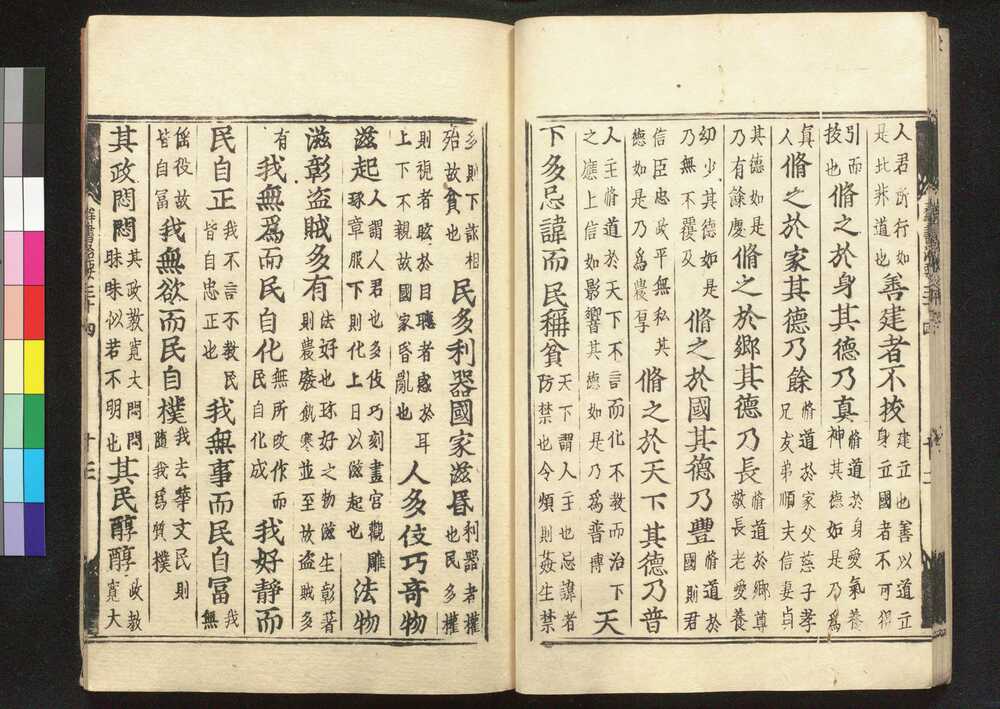 人君所行如是此非道也善建者不拔建立也善以道立身立國者不可得
引而拔也脩之於身其德乃真脩道於身愛氣養神其德如是乃爲
真人脩之於家其德乃餘脩道於家父慈子孝兄友弟順夫信妻貞
其德如是乃有餘慶脩之於鄉其德乃長脩道於鄉尊敬長老愛養
幼少其德如是乃無不覆及脩之於國其德乃豐脩道於國則君
信臣忠政平無私其德如是乃爲豐厚脩之於天下其德乃普
人主脩道於天下不言而化不教而治下之應上信如影響其德如是乃爲普博天
下多忌諱而民彌貧天下謂人主也忌諱者防禁也令煩則姦生禁
多則下詐相殆故貧也民多利器國家滋昏利器者權也民多權
則視者眩於目聽者惑於耳上下不親故國家昏亂也人多伎巧奇物
滋起人謂人君也多伎巧刻畫宮觀雕琢章服下則化上日以滋起也法物
滋彰盜賊多有法好也珍好之物滋生彰著則農廢飢寒並至故盜賊多
有我無爲而民自化無所改作而民自化成我好靜而
民自正我不言不教民皆自忠正也我無事而民自冨我無
徭役故皆自冨我無欲而民自樸我去華文民則隨我爲質樸
其政悶悶其政教寬大悶悶昧昧似若不明也其民醇醇政教寬大
群書治要三十四 十三